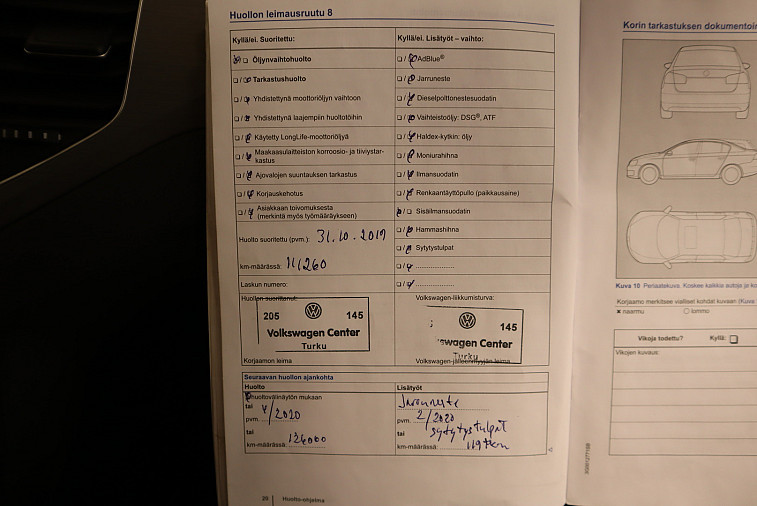 Huollon leimausruutu 8
Kyllä/ei. Suoritettu:
Öljynvaihtohuolto
Tarkastushuolto
Yhdistettynä moottoriöljyn vaihtoon
Yhdistettynä laajempiin huoltotöihin
Käytetty LongLife-moottoriöljyä
Maakaasulaitteiston korroosio- ja tiiviystar-
kastus
Ajovalojen suuntauksen tarkastus
Korjauskehotus
Asiakkaan toivomuksesta
(merkintä myös työmääräykseen)
Huolto suoritettu (pvm.): 31.10.2019
km-määrässä: 111260
Laskun numero:
Huollon suorittanut:
205 145
Volkswagen Center
Turku
Korjaamon leima
Kyllä/ei. Lisätyöt – vaihto:
AdBlue®
Jarruneste
Dieselpolttonestesuodatin
Vaihteistoöljy: DSG®, ATF
Haldex-kytkin: öljy
Moniurahihna
Ilmansuodatin
Renkaantäyttöpullo (paikkausaine)
Sisäilmansuodatin
Hammashihna
Sytytystulpat
Volkswagen-liikkumisturva:
145
swagen Center
Turku
Volkswagen-jälleenmyyjän leima
Seuraavan huollon ajankohta
Huolto
huoltovälinäytön mukaan
tai
pvm. 4/2020
tai
km-määrässä: 126000
Lisätyöt
Jarruneste
pvm. 2/2020
tai sytytystulpat
km-määrässä: 119tkm
20 Huolto-ohjelma
Korin tarkastuksen dokumentoin
Kuva 10 Periaatekuva. Koskee kaikkia autoja ja ko
Korjaamo merkitsee vialliset kohdat kuvaan (Kuva
naarmu lommo
Vikoja todettu? Kyllä:
Vikojen kuvaus: